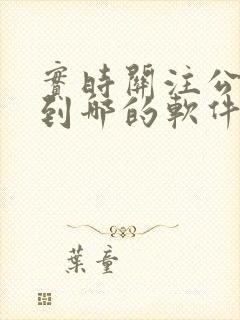 實時關注公
到哪的軟件
葉童